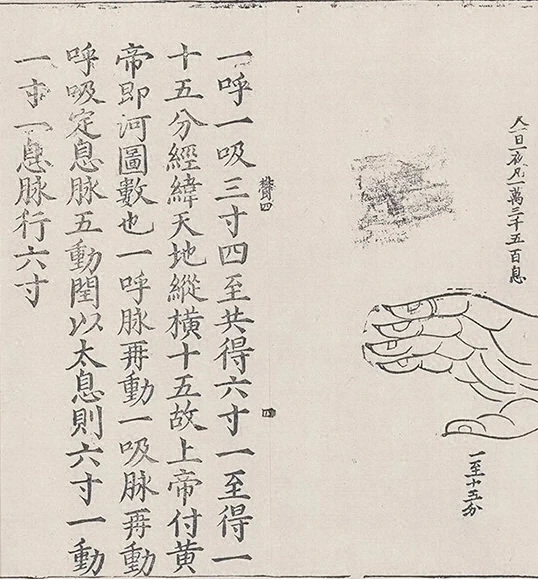 人一日一夜凡一萬三千五百息
一至十五分
贊四
四
一呼一吸三寸四至共得六寸一至得一
十五分經緯天地縱橫十五故上帝付黃
帝即河圖數也一呼脉再動一吸脉再動
呼吸定息脉五動閏以太息則六寸一動
一寸一息脉行六寸